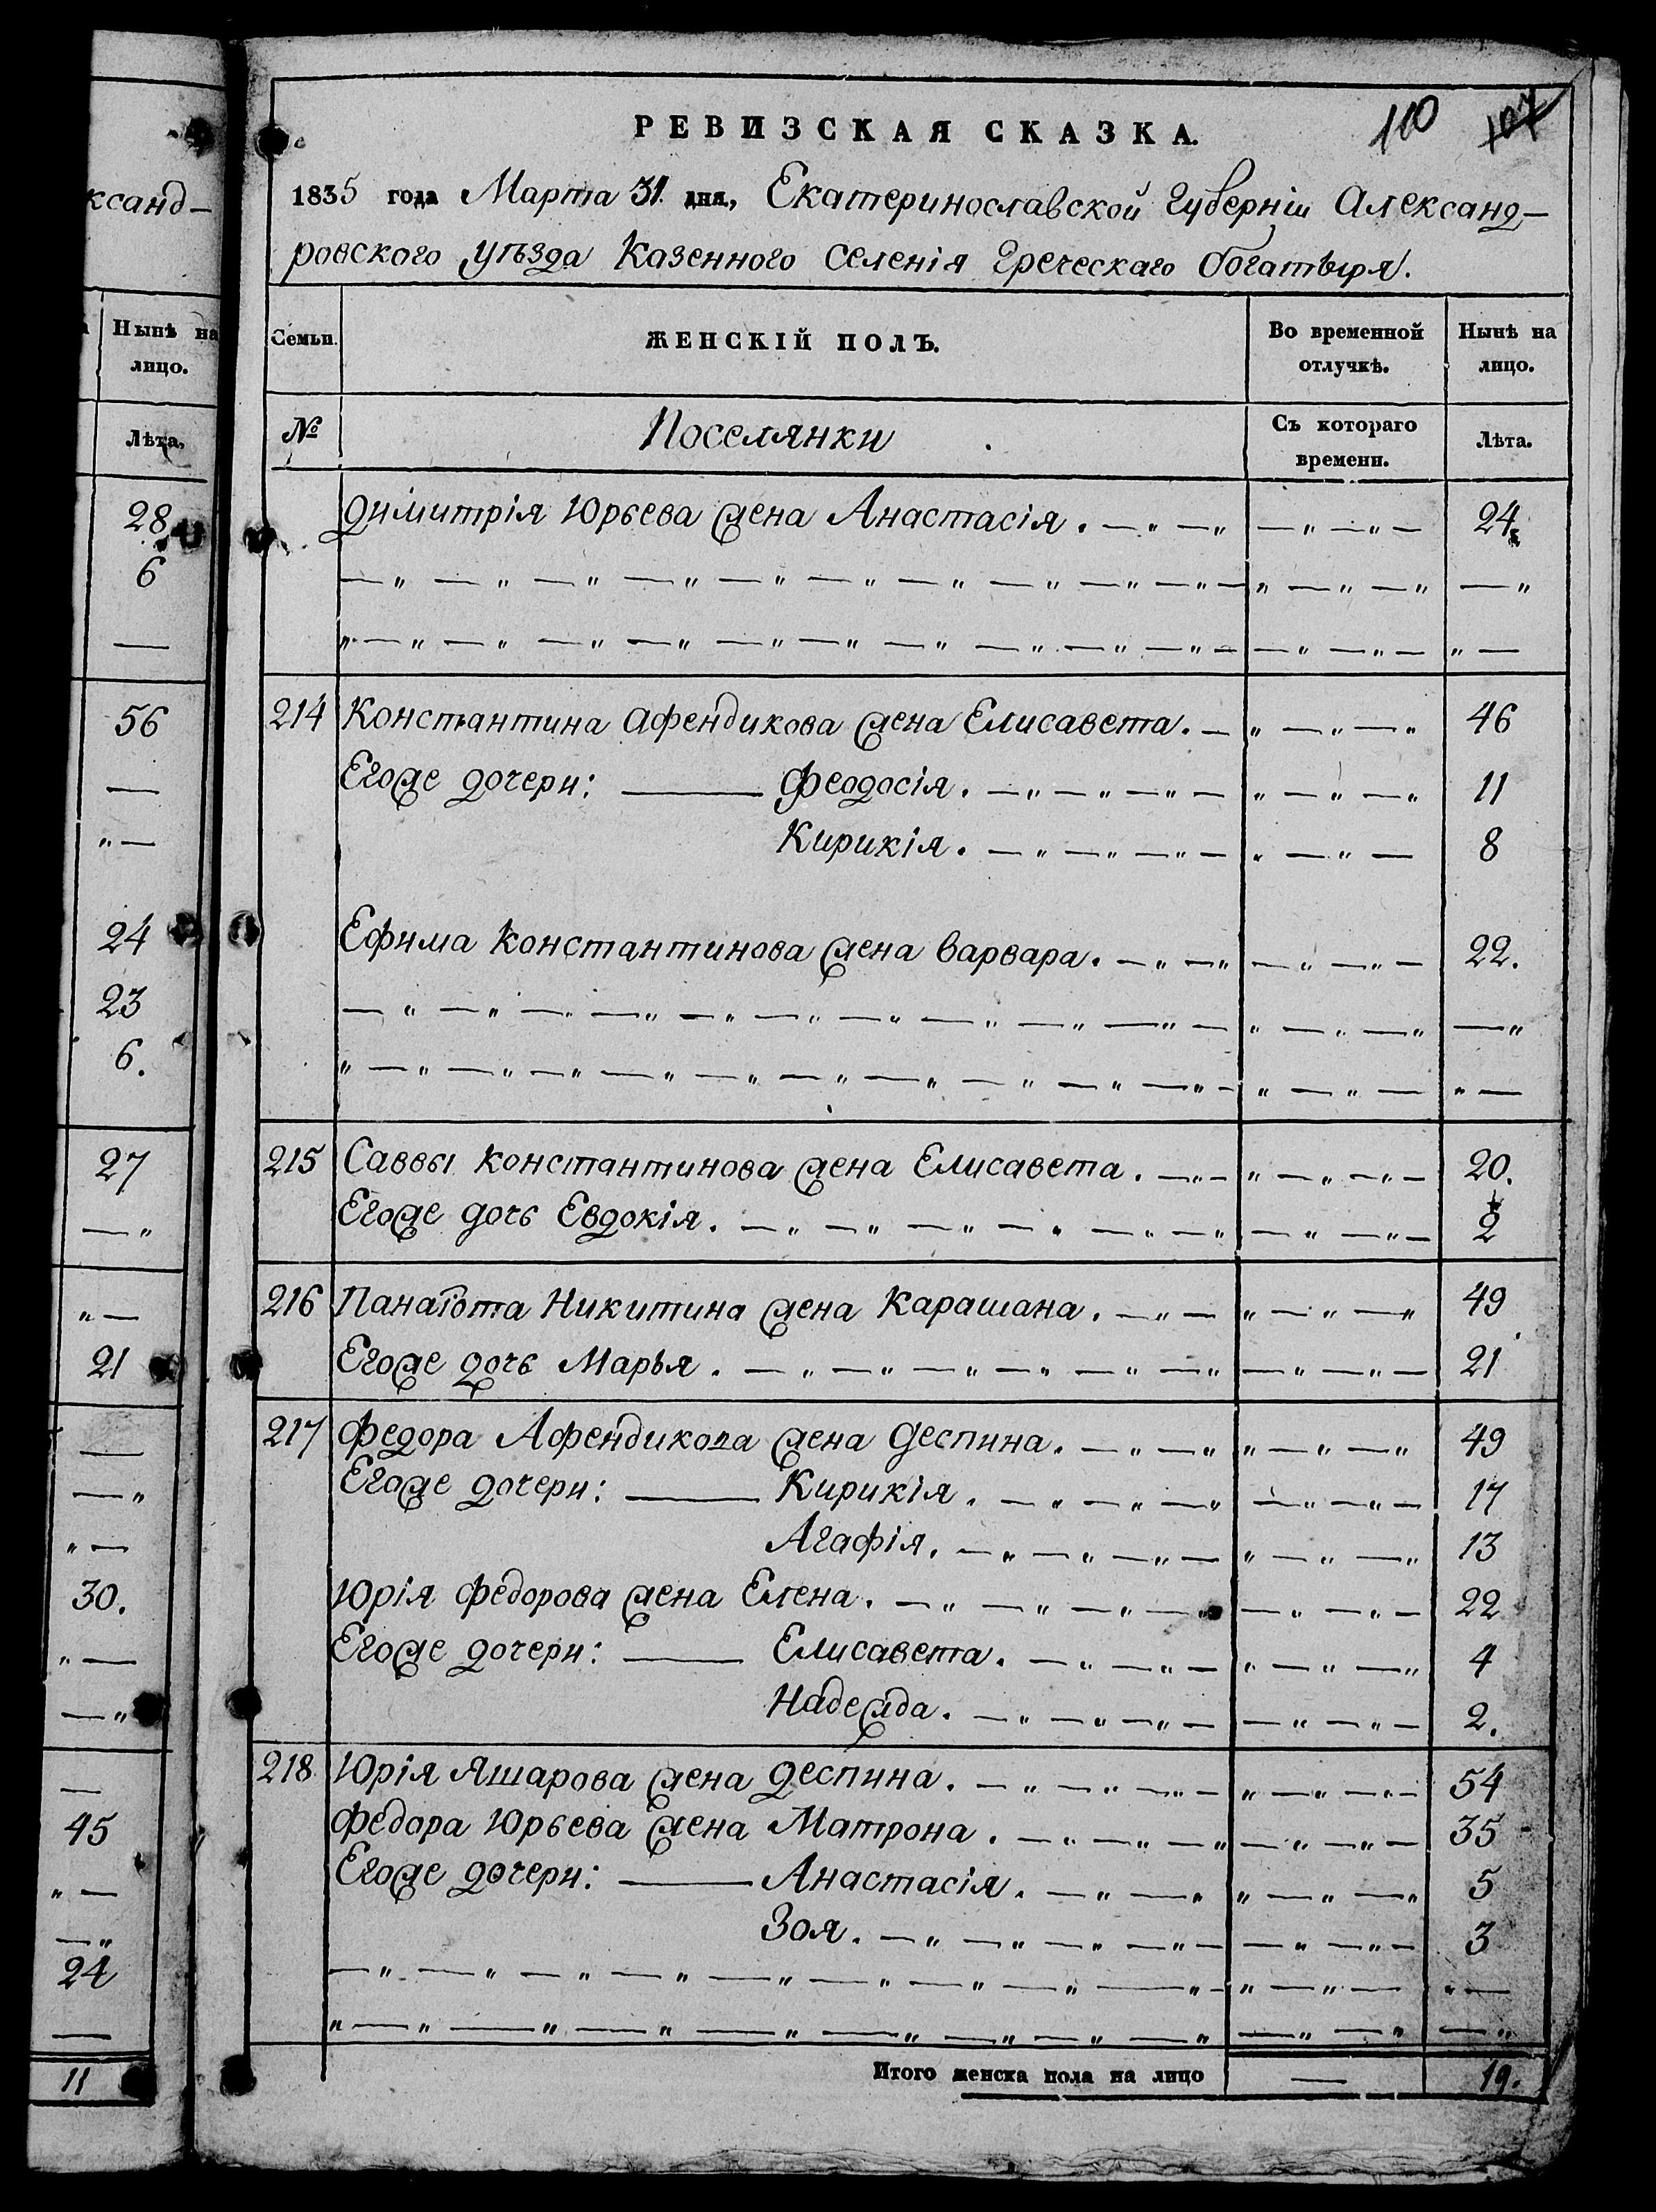 ксанд-
Нынѣ на
лицо.
Лѣта.
28
6
—
56
—
„ —
24
23
6.
27
— „
„ —
21
—
— „
„ —
30.
„ —
— „
—
45
„ —
— „
24
—
11
РЕВИЗСКАЯ СКАЗКА.
110 107
1835 года Марта 31. дня, Екатеринославской Губерніи Александ-
ровского уѣзда Казенного Селенія Греческаго Богатыря.
Семьи. ЖЕНСКІЙ ПОЛЪ. Во временной отлучкѣ. Нынѣ на лицо.
№ Поселянки Съ котораго времени. Лѣта.
Димитрія Юрьева жена Анастасія. — „ — „ — „ — „ — 24
— „ — „ — „ — „ — „ — „ — „ — „ — „ — „ — „ — „ — „ — „
„ — „ — „ — „ — „ — „ — „ — „ — „ — „ — „ — — „ — „ — „ —
214 Константина Афендикова жена Елисавета. — „ — „ — „ 46
Егоже дочери: — Феодосія. — „ — „ — „ — „ — „ — „ 11
Кирикія. — „ — „ — „ — „ — „ — 8
Ефима Константинова жена Варвара. — „ — „ — „ — „ — 22.
— „ — „ — „ — „ — „ — „ — „ — „ — „ — „ — „ — „ — „ — „
„ — „ — „ — „ — „ — „ — „ — „ — „ — „ — „ — „ — „ — „ —
215 Саввы Константинова жена Елисавета. — „ — „ — „ — „ — 20.
Егоже дочь Евдокія. — „ — „ — „ — „ — „ — „ — „ — „ — 2
216 Панаіота Никитина жена Карашана. — „ — „ — „ — „ 49
Егоже дочь Марья. — „ — „ — „ — „ — „ — „ — „ — „ — 21
217 Федора Афендикова жена Деспина. — „ — „ „ — „ — „ 49
Егоже дочери: — Кирикія. — „ — „ — „ — „ — „ — 17
Агафія. — „ — „ — „ — „ — „ — „ 13
Юрія Федорова жена Елена. — „ — „ — „ — „ — „ — „ — 22
Егоже дочери: — Елисавета. — „ — „ — „ — „ — „ 4
Надежда. — „ — „ — „ — — „ — „ — 2.
218 Юрія Яшарова жена Деспина. — „ — „ — „ — „ — „ — „ — 54
Федора Юрьева жена Матрона. — „ — „ — „ — „ — „ — 35
Егоже дочери: — Анастасія. — „ — „ „ — „ — „ 5
Зоя. — „ — „ — „ — „ — — „ — „ — 3
— „ — „ — „ — „ — „ — „ — „ — „ — „ — „ — „ — „ —
„ — „ — „ — „ — „ — „ — „ — „ — „ — „ — „ — „
Итого женска пола на лицо — 19.